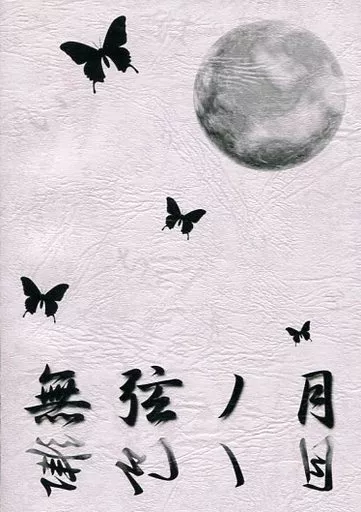 無弦ノ月